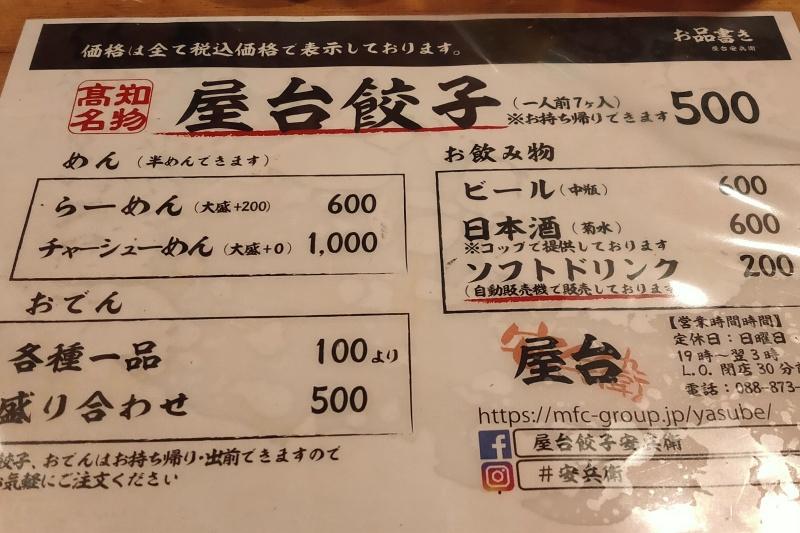 価格は全て税込価格で表示しております。
お品書き
屋台安兵衛
高知名物
屋台餃子（一人前7ヶ入）500
※お持ち帰りできます
めん（半めんできます）
らーめん（大盛+200）600
チャーシューめん（大盛+0）1,000
おでん
各種一品 100より
盛り合わせ 500
餃子、おでんはお持ち帰り・出前できますので
お気軽にご注文ください
お飲み物
ビール（中瓶）600
日本酒（菊水）600
※コップで提供しております
ソフトドリンク 200
（自動販売機で販売しております
屋台
【営業時間時間】
定休日：日曜日
19時〜翌3時
L.O. 閉店30分前
電話：088-873-
https://mfc-group.jp/yasube/
屋台餃子安兵衛
#安兵衛